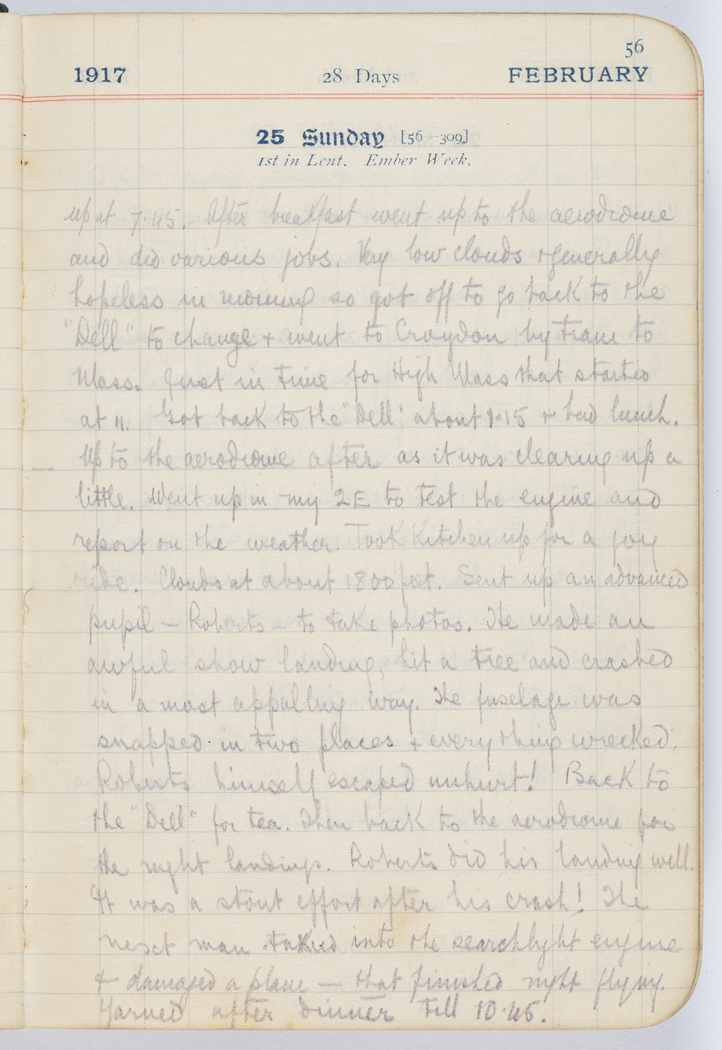 56
1917 28 Days FEBRUARY
25 Sunday [56-309]
1st in Lent. Ember Week.
up at 7.45. After breakfast went up to the aerodrome
and did various jobs. Very low clouds & generally
hopeless in morning so got off to go back to the
"Dell" to change & went to Croydon by tram to
Mass. Just in time for High Mass that started
at 11. Got back to the "Dell" about 1.15 & had lunch.
Up to the aerodrome after as it was clearing up a
little. Went up in my 2E to test the engine and
report on the weather. Took Kitchen up for a joy
ride. Clouds at about 1800 feet. Sent up an advanced
pupil - Roberts - to take photos. He made an
awful show landing, hit a tree and crashed
in a most appalling way. The fuselage was
snapped in two places & everything wrecked.
Roberts himself escaped unhurt! Back to
the "Dell" for tea. Then back to the aerodrome for
the night landings. Roberts did his landing well.
It was a stout effort after his crash! The
next man taxied into the searchlight engine
& damaged a plane - that finished night flying.
Yarned after dinner till 10.45.